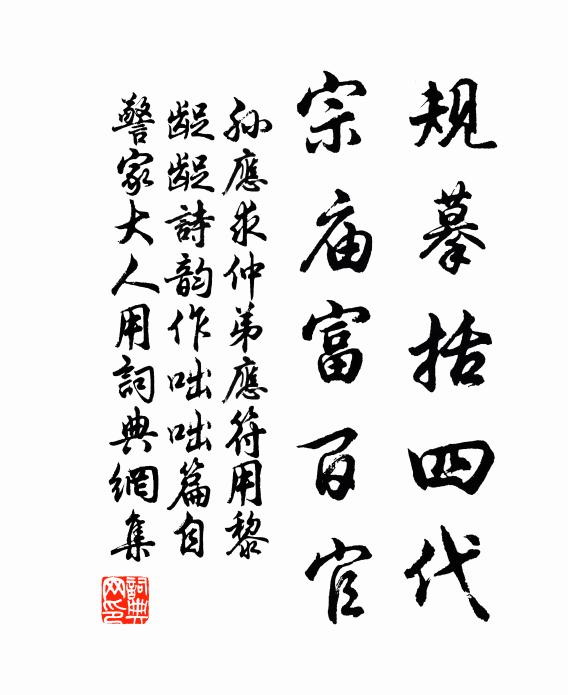 規摹括四代
宗庙富百官
孙應求仲弟應符用黎
齪齪詩韵作咄咄篇自
警家大人用詞典網集
詞典網印